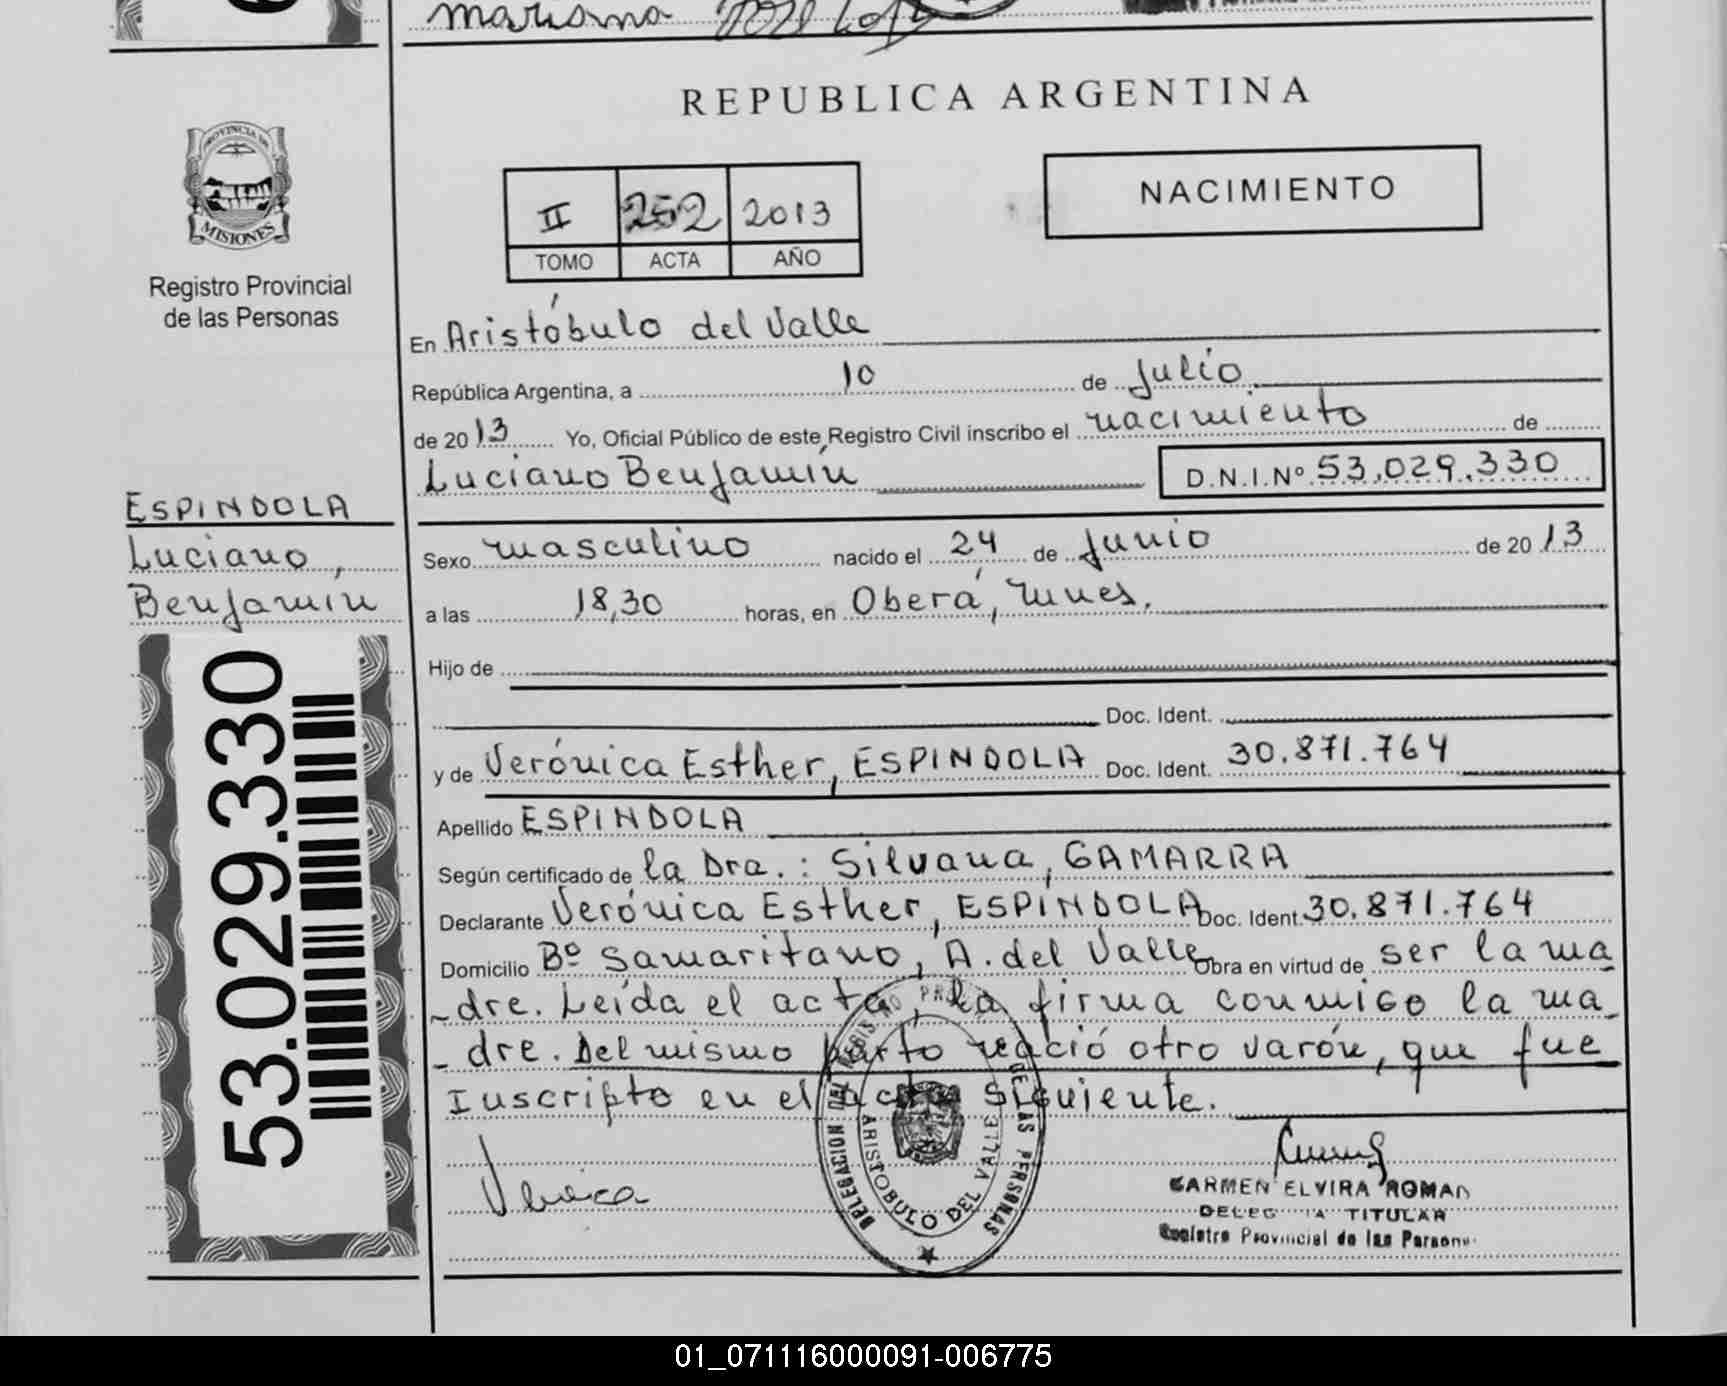 mariana
REPUBLICA ARGENTINA
PROVINCIA DE
MISIONES
Registro Provincial
de las Personas
II 252 2013
TOMO ACTA AÑO
NACIMIENTO
En Aristóbulo del Valle
República Argentina, a 10 de Julio
de 2013 Yo, Oficial Público de este Registro Civil inscribo el nacimiento de
Luciano Benjamín D.N.I.Nº 53.029.330
ESPINDOLA
Luciano,
Benjamín
53.029.330
Sexo masculino nacido el 24 de Junio de 2013
a las 18,30 horas, en Oberá, Mnes.
Hijo de
Doc. Ident.
y de Verónica Esther, ESPINDOLA Doc. Ident. 30.871.764
Apellido ESPINDOLA
Según certificado de la Dra.: Silvana, GAMARRA
Declarante Verónica Esther, ESPINDOLA Doc. Ident. 30.871.764
Domicilio Bº Samaritano, A. del Valle Obra en virtud de ser la ma
-dre. Leída el acta, la firma conmigo la ma
- dre. Del mismo parto nació otro varón, que fue
Inscripto en el acta siguiente.
DELEGACION DEL REGISTRO PROV. DE LAS PERSONAS
ARISTOBULO DEL VALLE
CARMEN ELVIRA ROMAN
DELEGADA TITULAR
Registro Provincial de las Personas
01_071116000091-006775